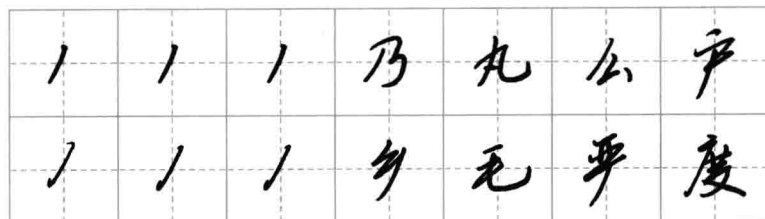 丿丿丿乃丸公户
丿丿丿乡毛严度